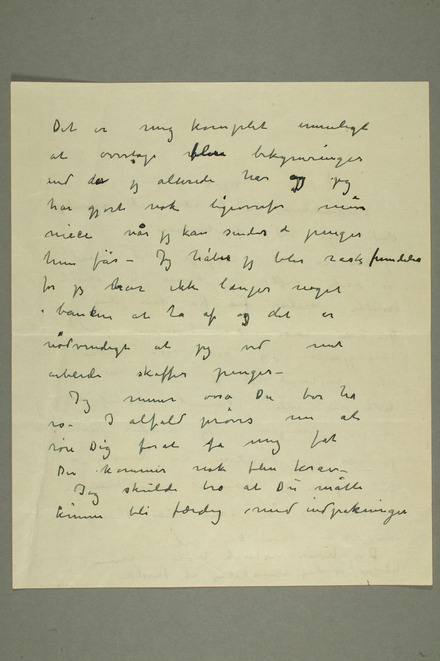 Det er mig komplet umuligt
at overtage flere bekymringer
end de jeg allerede har og jeg
har gjort nok ligeoverfor min
niece når jeg kan sender de penger
hun får – Jeg håber jeg blir rask fremdeles
for jeg har ikke længer noget
i banken at ta af og det er
nödvendigt at jeg ved mit
arbeide skaffer penger –
Jeg mener også Du bør ha
ro – I alfald prøves nu at
røre Dig forat få mig fat
Der kommer nok flere krav –
Jeg skulde tro at Du måtte
kunne bli færdig med indpakninger